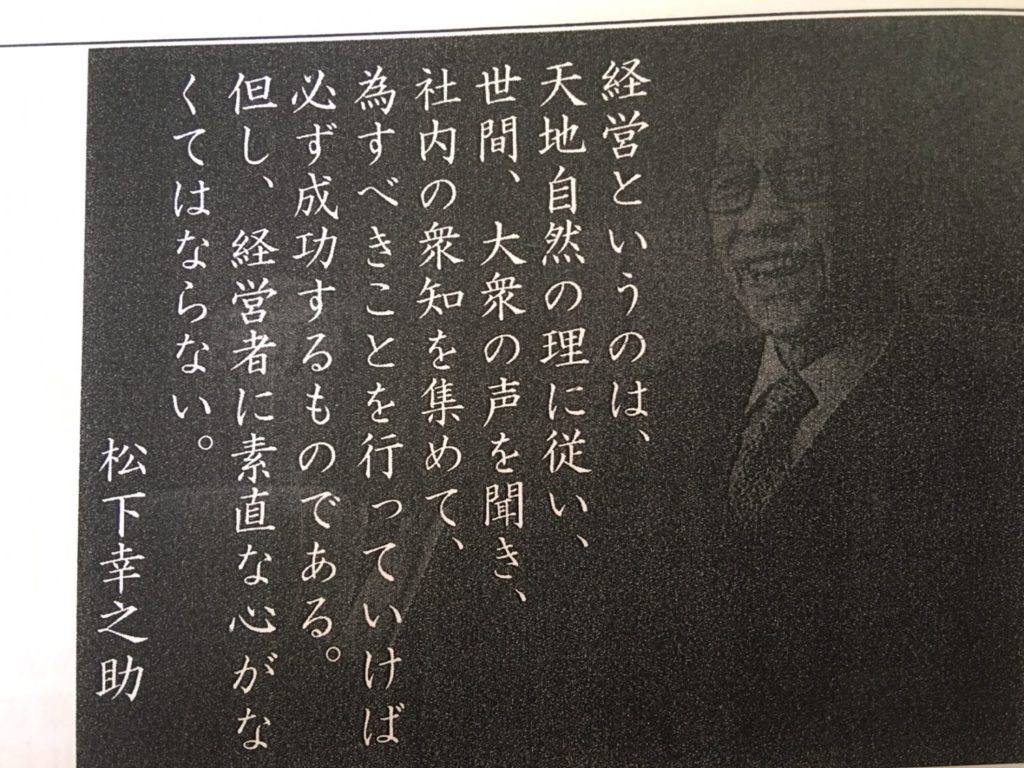 経営というのは、
天地自然の理に従い、
世間、大衆の声を聞き、
社内の衆知を集めて、
為すべきことを行っていけば
必ず成功するものである。
但し、経営者に素直な心がな
くてはならない。
松下幸之助